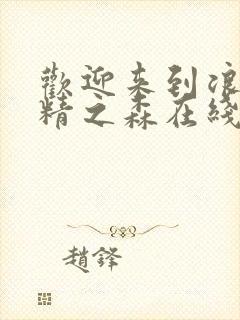 歡迎来到浪
精之森在綫
趙鋒